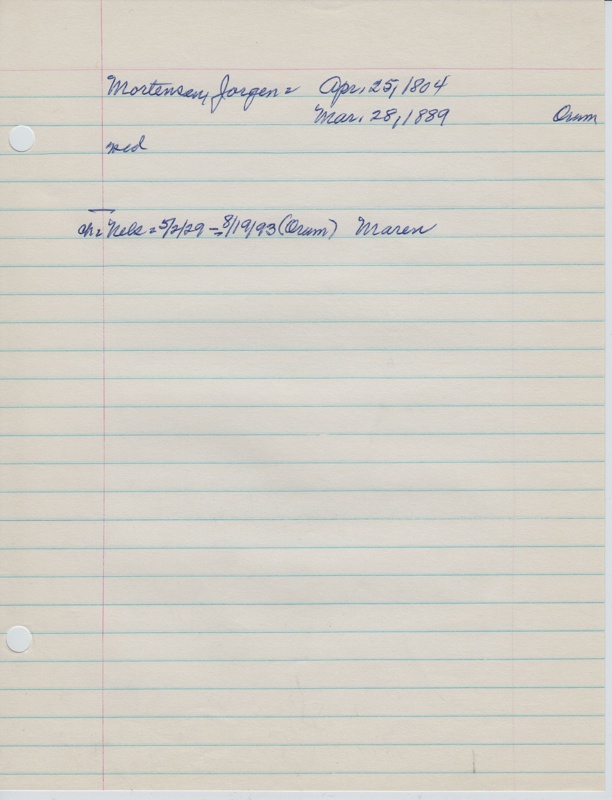 Mortensen, Jorgen = Apr. 25, 1804
Mar. 28, 1889 Orum
med
ch = Nels = 5/2/29 - 8/19/93 (Orum) Maren